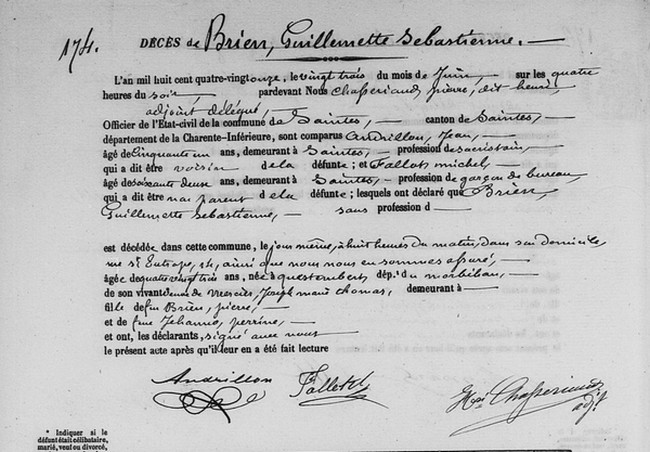 174.
DÉCÈS de Brien, Guillemette Sebastienne.
L'an mil huit cent quatre-vingt onze, le vingt trois du mois de Juin, sur les quatre
heures du soir, pardevant Nous Chasseriaud, pierre, dit henri,
adjoint délégué,
Officier de l'Etat-civil de la commune de Saintes, canton de Saintes,
département de la Charente-Inférieure, sont comparus Andrillon, Jean,
âgé de Cinquante un ans, demeurant à Saintes, profession de sacristain,
qui a dit être voisin de la défunte; et Fallot, michel,
âgé de soixante deux ans, demeurant à Saintes, profession de garçon de bureau,
qui a dit être non parent de la défunte; lesquels ont déclaré que Brien,
Guillemette Sebastienne, sans profession d
est décédée dans cette commune, le jour même, à huit heures du matin, dans son domicile
rue St Eutrope, ainsi que nous nous en sommes assuré,
âgée de quatre vingt trois ans, née à questembert, dép.t du morbihan,
de son vivant veuve de mercier, Joseph marie thomas, demeurant à
fille de feu Brien, pierre,
et de feue Jehanno, perrine,
et ont, les déclarants, signé avec nous
le présent acte après qu'il leur en a été fait lecture
Andrillon Hri Chasseriaud
adjt
* Indiquer si le
défunt était célibataire,
marié, veuf ou divorcé,